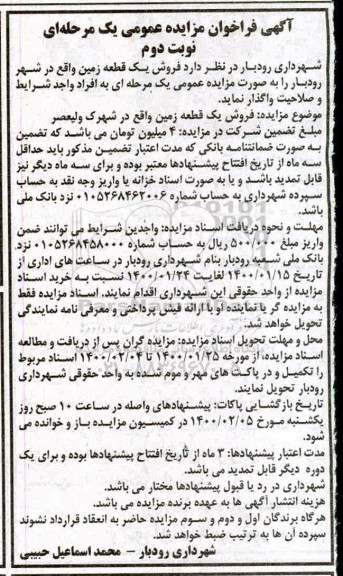 آگهی فراخوان مزایده عمومی یک مرحله‌ای
نوبت دوم
شهرداری رودبار در نظر دارد فروش یک قطعه زمین واقع در شهر
رودبار را به صورت مزایده عمومی یک مرحله ای به افراد واجد شرایط
و صلاحیت واگذار نماید.
موضوع مزایده: فروش یک قطعه زمین واقع در شهرک ولیعصر
مبلغ تضمین شرکت در مزایده: ۴ میلیون تومان می باشد که تضمین
به صورت ضمانتنامه بانکی که مدت اعتبار تضمین مذکور باید حداقل
سه ماه از تاریخ افتتاح پیشنهادها معتبر بوده و برای سه ماه دیگر نیز
قابل تمدید باشد و یا به صورت اسناد خزانه یا واریز وجه نقد به حساب
سپرده شهرداری به حساب شماره ۰۱۰۵۲۶۸۴۶۲۰۰۶ نزد بانک ملی
باشد.
مهلت و نحوه دریافت اسناد مزایده: واجدین شرایط می توانند ضمن
واریز مبلغ ۵۰۰/۰۰۰ ریال به حساب شماره ۰۱۰۵۲۶۸۴۵۸۰۰۰ نزد
بانک ملی شعبه رودبار بنام شهرداری رودبار در ساعت های اداری از
تاریخ ۱۴۰۰/۰۱/۱۵ لغایت ۱۴۰۰/۰۱/۲۴ نسبت به خرید اسناد
مزایده از واحد حقوقی این شهرداری اقدام نمایند. اسناد مزایده فقط
به مزایده گر یا نماینده او با ارائه فیش پرداختی و معرفی نامه نمایندگی
تحویل خواهد شد.
محل و مهلت تحویل اسناد مزایده: مزایده گران پس از دریافت و مطالعه
اسناد مزایده، از مورخه ۱۴۰۰/۰۱/۲۵ تا ۱۴۰۰/۰۲/۰۴ اسناد مربوط
را تکمیل و در پاکت های مهر و موم شده به واحد حقوقی شهرداری
رودبار تحویل نمایند.
تاریخ بازگشایی پاکات: پیشنهادهای واصله در ساعت ۱۰ صبح روز
یکشنبه مورخ ۱۴۰۰/۰۲/۰۵ در کمیسیون مزایده باز و خوانده می
شود.
مدت اعتبار پیشنهادها: ۳ ماه از تاریخ افتتاح پیشنهادها بوده و برای یک
دوره دیگر قابل تمدید می باشد.
شهرداری در رد یا قبول پیشنهادها مختار می باشد.
هزینه انتشار آگهی ها به عهده برنده مزایده می باشد.
هرگاه برندگان اول و دوم و سوم مزایده حاضر به انعقاد قرارداد نشوند
سپرده آن ها به ترتیب ضبط خواهد شد.
شهرداری رودبار – محمد اسماعیل حبیبی